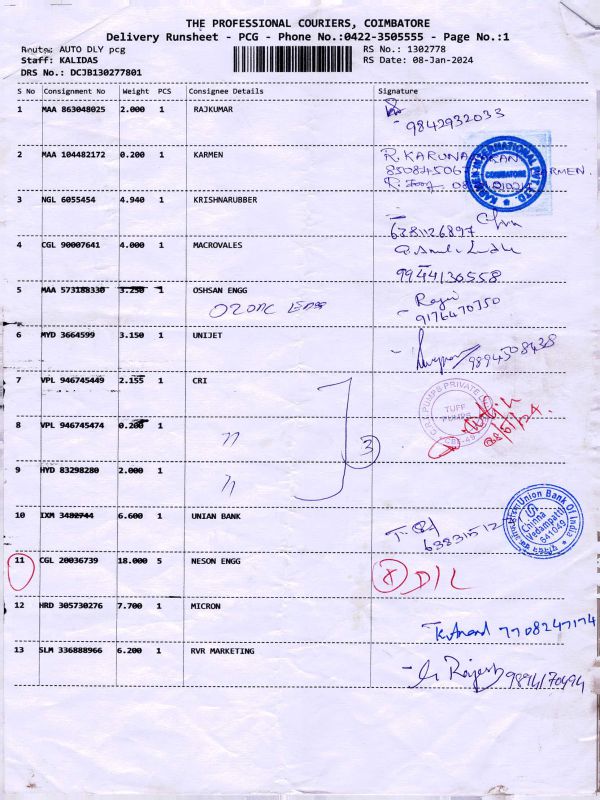 THE PROFESSIONAL COURIERS, COIMBATORE
Delivery Runsheet - PCG - Phone No.:0422-3505555 - Page No.:1
Route: AUTO DLY pcg RS No.: 1302778
Staff: KALIDAS RS Date: 08-Jan-2024
DRS No.: DCJB130277801
S No Consignment No Weight PCS Consignee Details Signature
1 MAA 863048025 2.000 1 RAJKUMAR
9842932033
2 MAA 104482172 0.200 1 KARMEN R. KARUNA
KARMEN INTERNATIONAL PVT. LTD.
COIMBATORE
3 NGL 6055454 4.940 1 KRISHNARUBBER
6381126897
4 CGL 90007641 4.000 1 MACROVALES
9944130558
5 MAA 573188330 3.250 1 OSHSAN ENGG
9176470750
6 MYD 3664599 3.150 1 UNIJET
9894508438
7 VPL 946745449 2.155 1 CRI
TUFF
PUMPS
8 VPL 946745474 0.200 1 "
3
9 HYD 83298280 2.000 1 "
10 IXM 3482744 6.600 1 UNIAN BANK
Union Bank Of India
Chinna
Vedampatti
641049
11 CGL 20036739 18.000 5 NESON ENGG X D/L
12 HRD 305730276 7.700 1 MICRON
7708247174
13 SLM 336888966 6.200 1 RVR MARKETING
Rajesh 9894170494